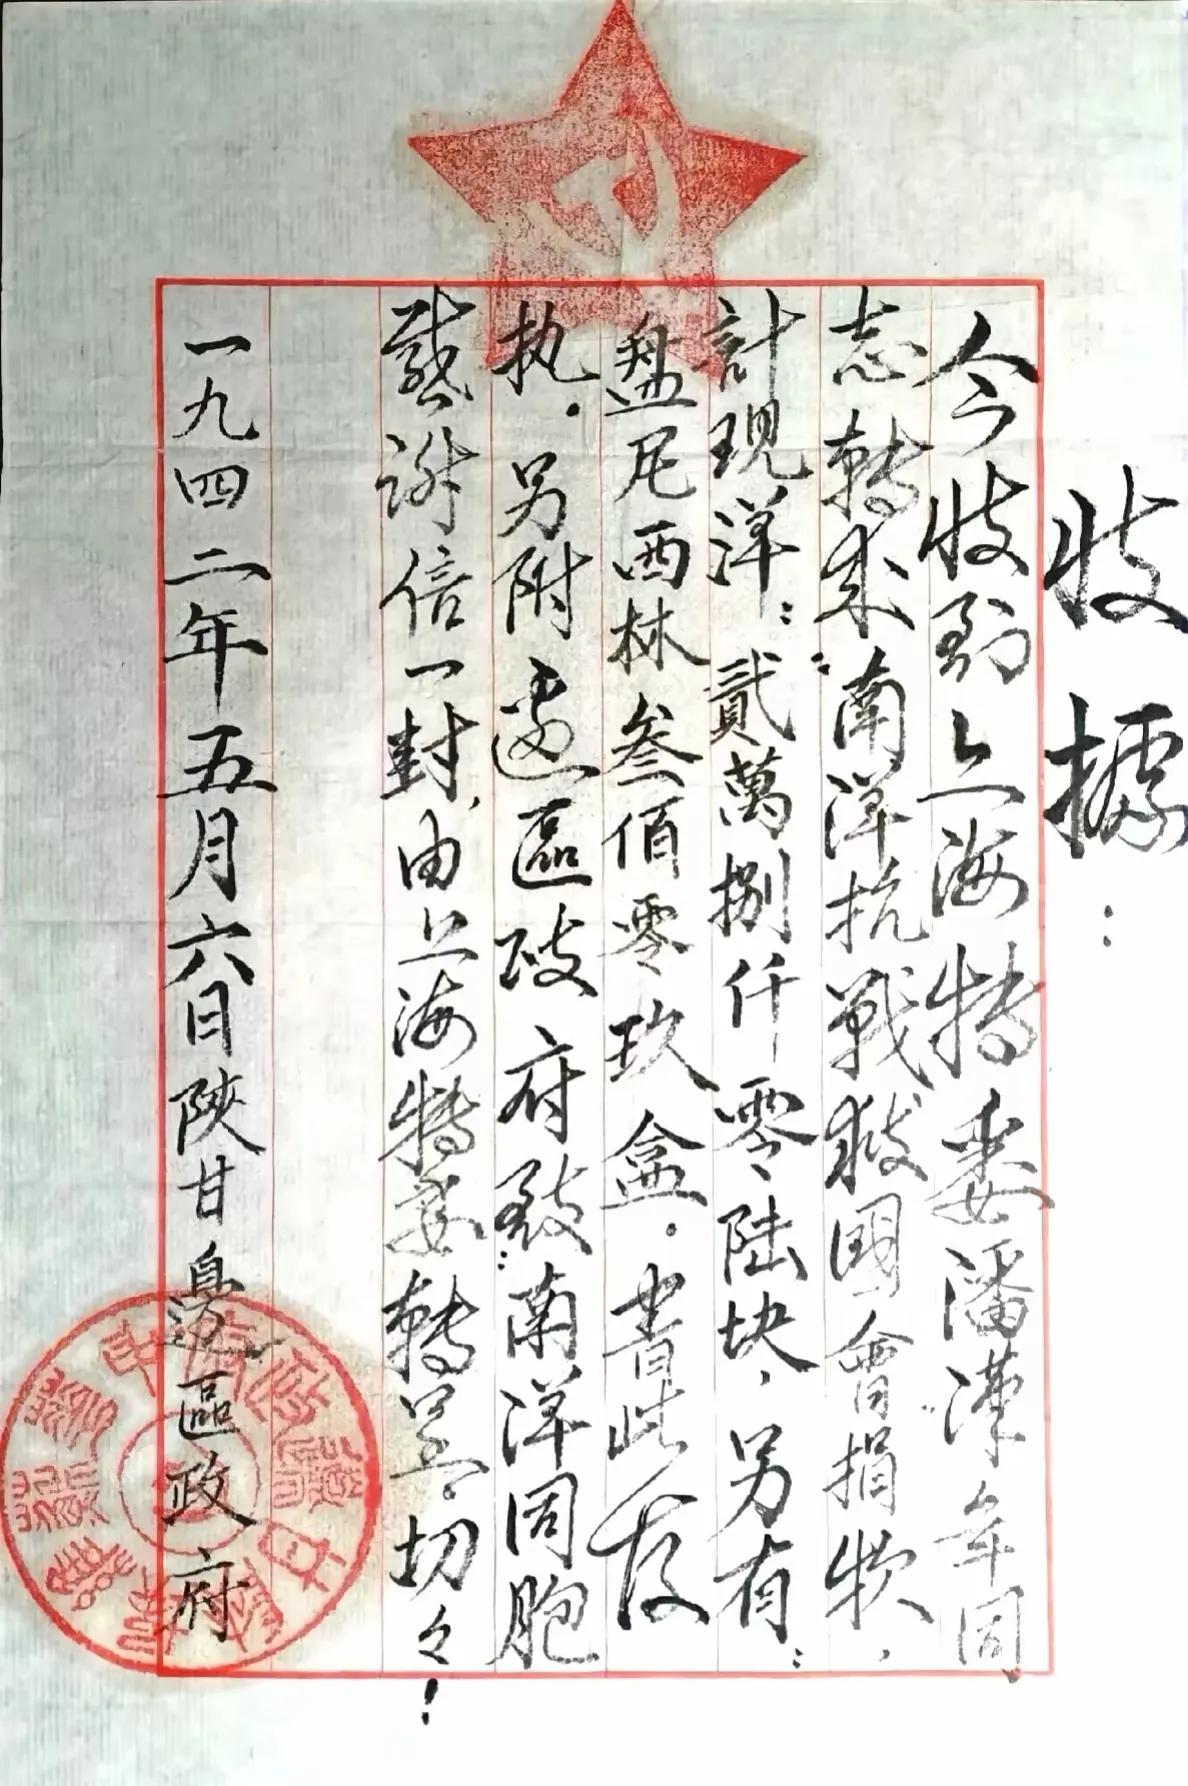 收據：
今收到上海特委潘漢年同
志轉來：南洋抗戰救國會捐款，
計現洋：貳萬捌仟零陆块，另有：
盘尼西林叁佰零玖盒。書此存
执。另附边區政府致：南洋同胞
感谢信一封，由上海特委轉呈。切々！
一九四二年五月六日陝甘邊區政府